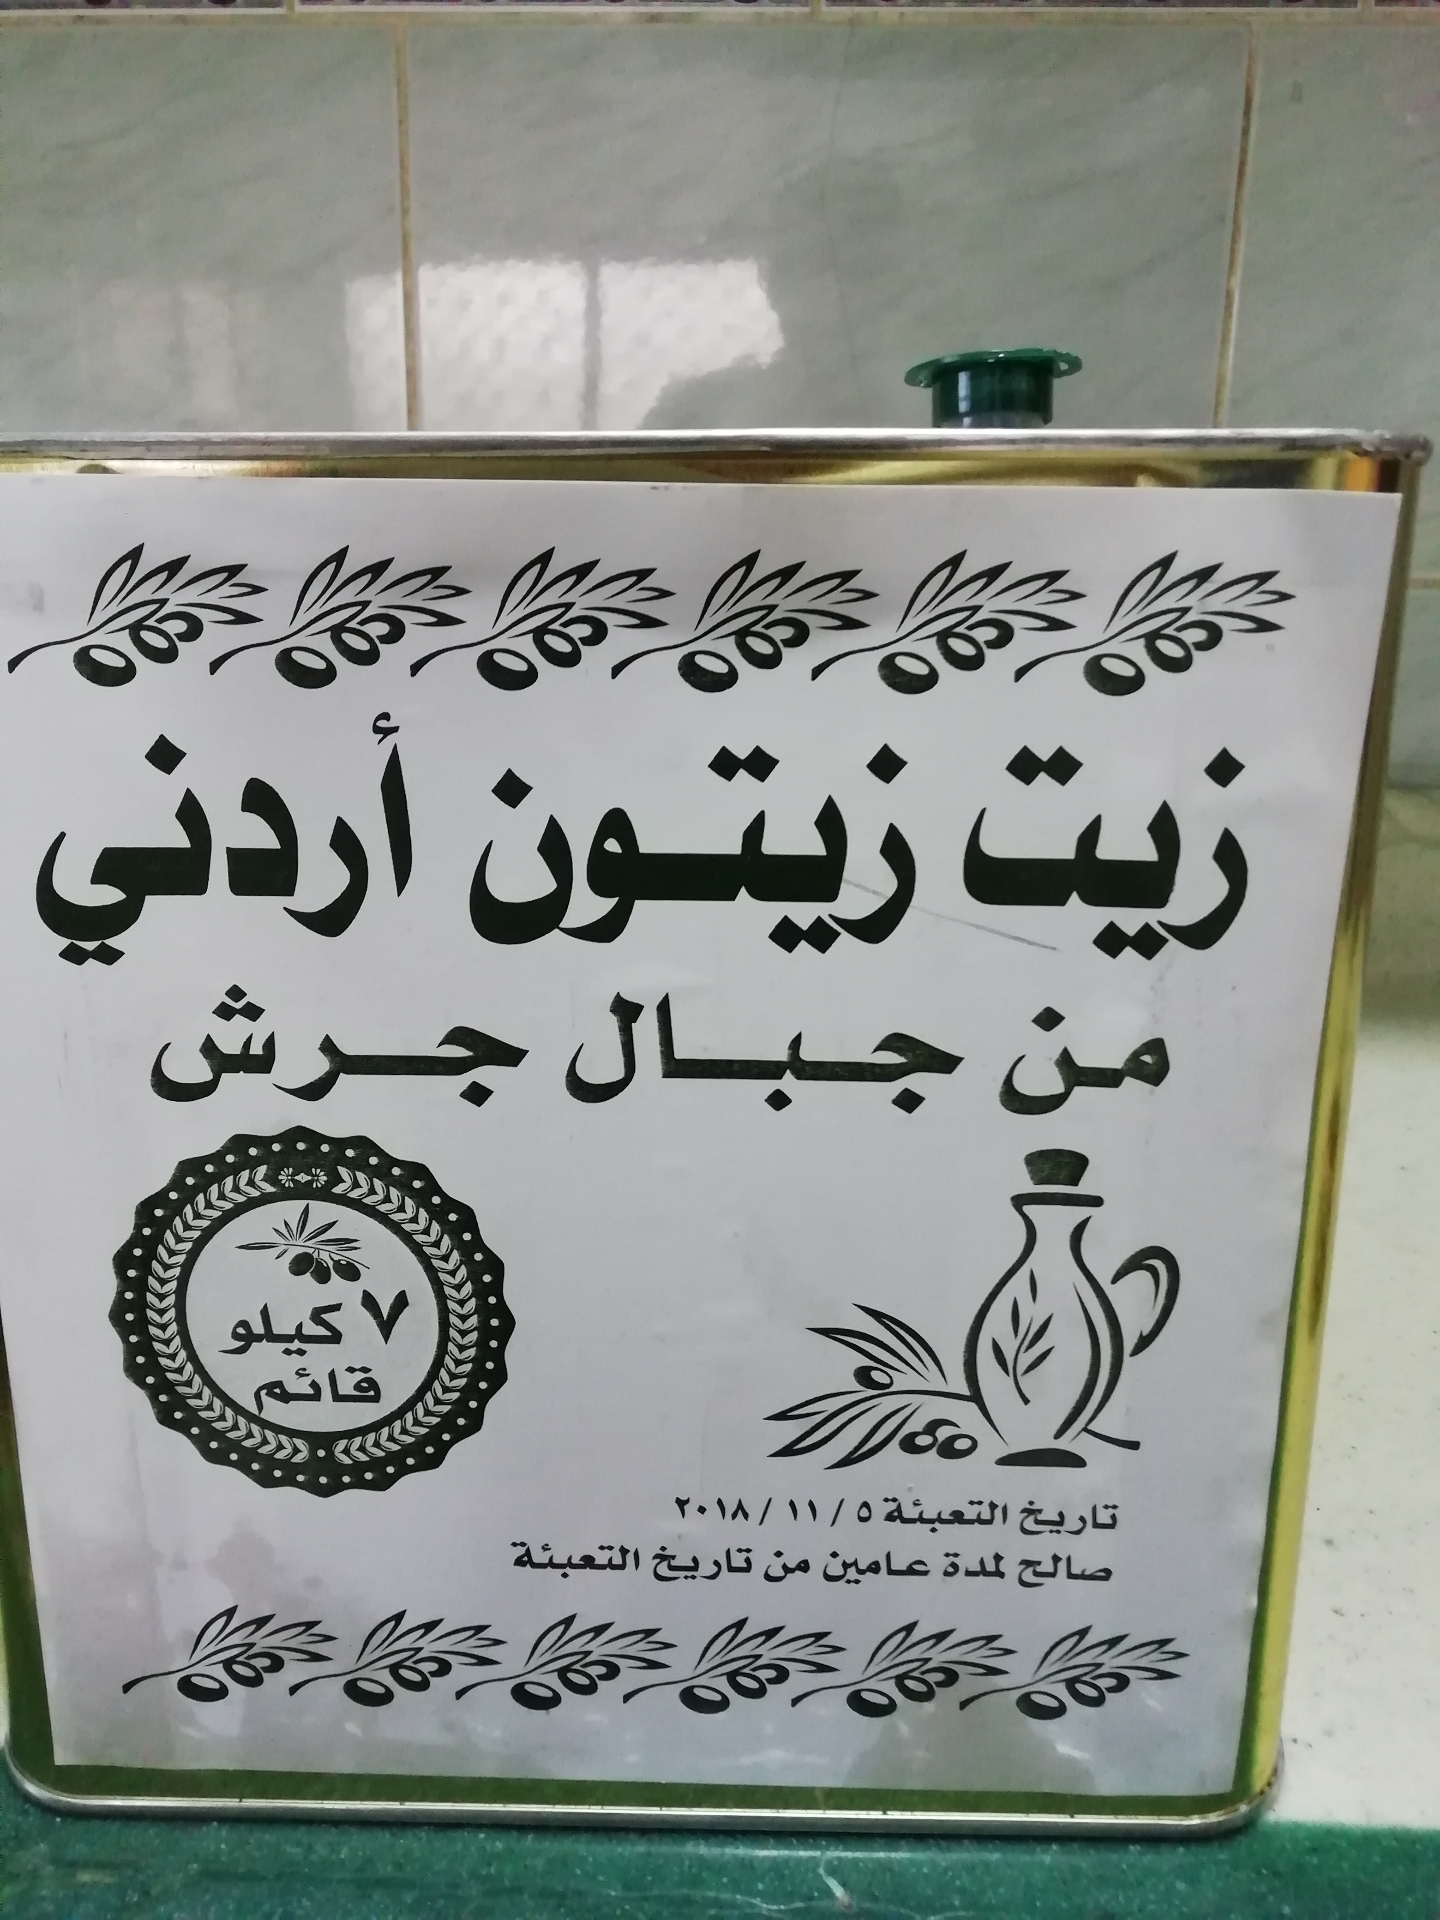 زيت زيتون أردني
من جبال جرش
٧ كيلو
قائم
تاريخ التعبئة ٥ / ١١ / ٢٠١٨
صالح لمدة عامين من تاريخ التعبئة